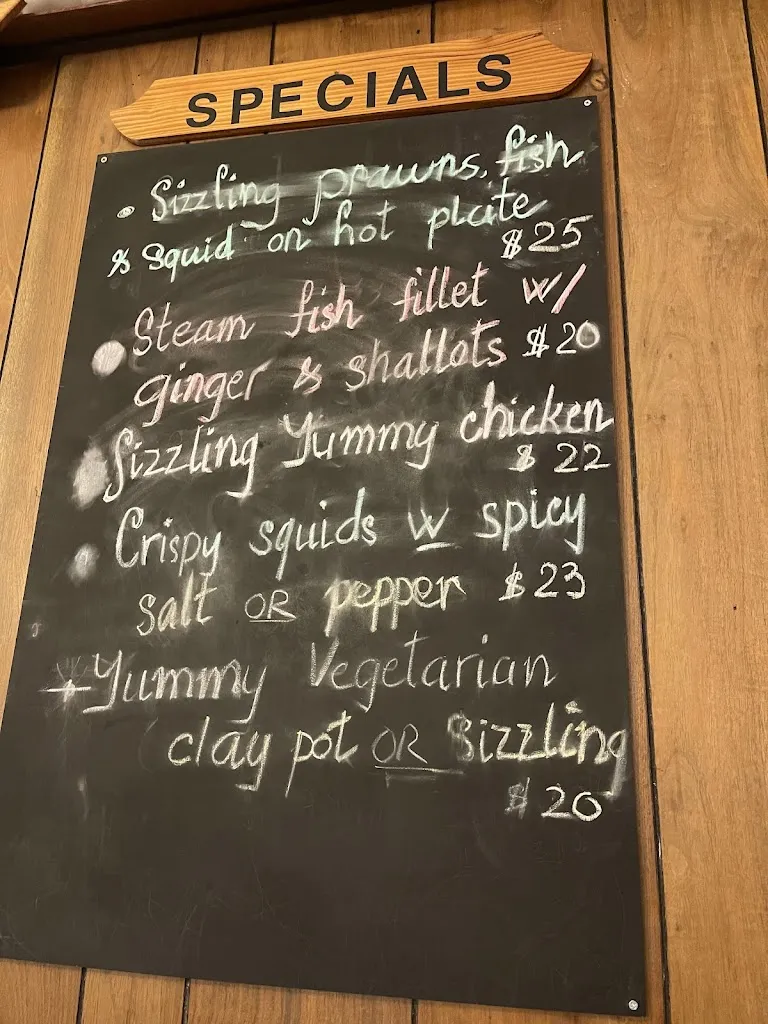 SPECIALS
• Sizzling prawns, fish
& squid on hot plate
$25
• Steam fish fillet w/
ginger & shallots $20
• Sizzling Yummy chicken
$22
• Crispy squids w spicy
salt OR pepper $23
+ Yummy Vegetarian
clay pot OR Sizzling
$20